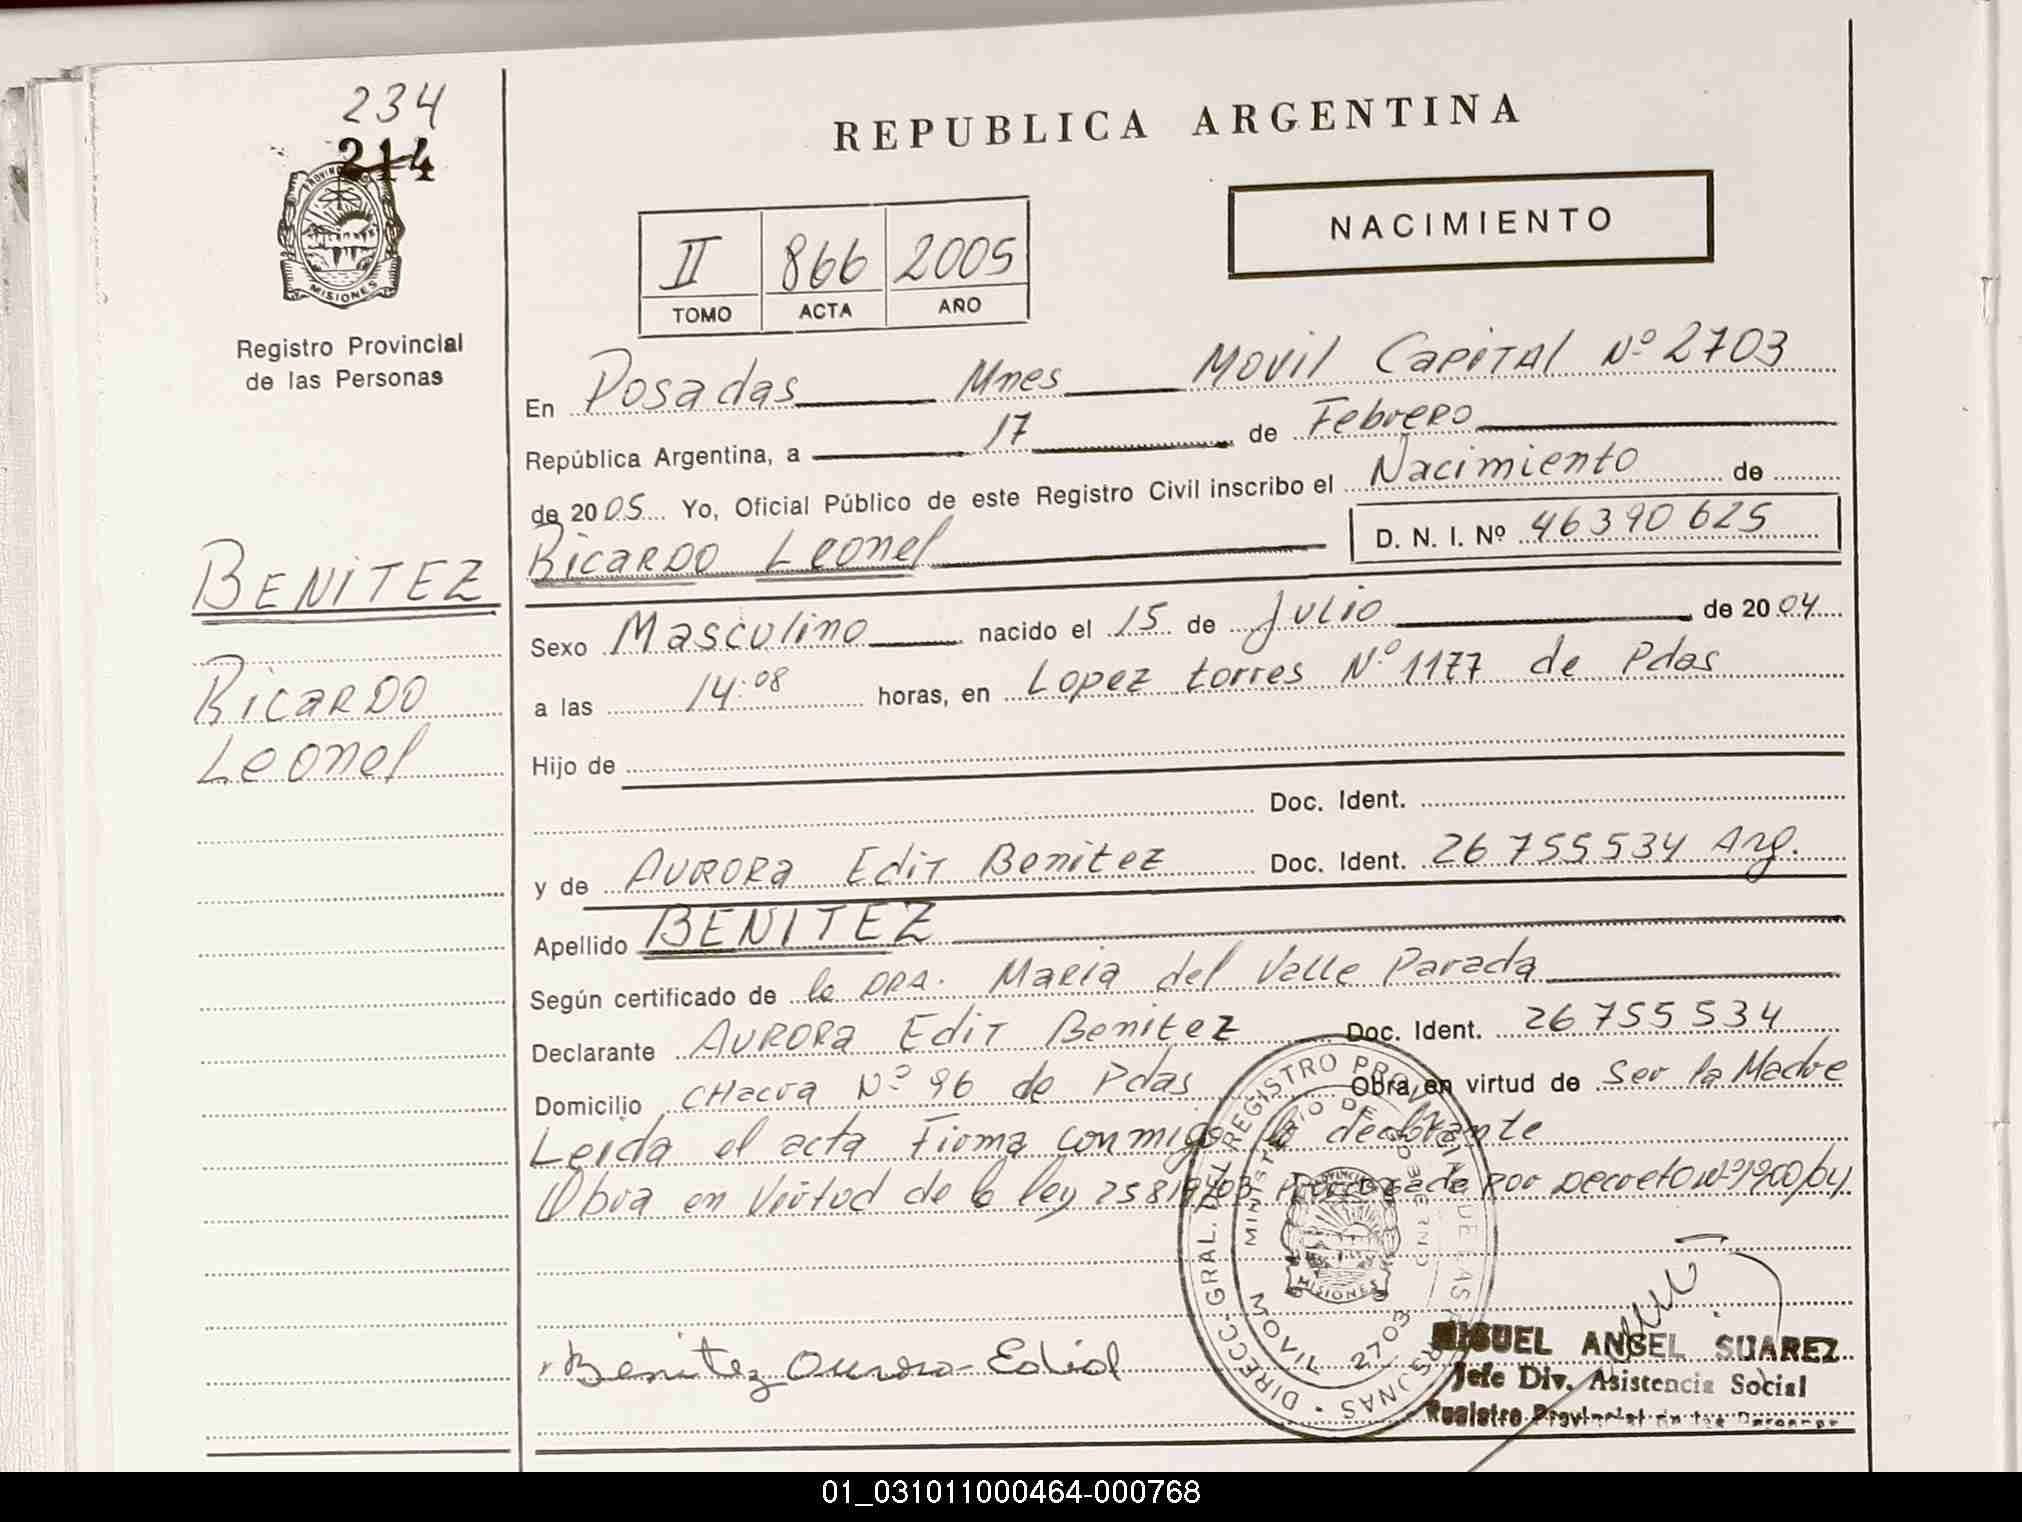 234
214
PROVINCIA
MISIONES
Registro Provincial
de las Personas
BENITEZ
Ricardo
Leonel
REPUBLICA ARGENTINA
NACIMIENTO
II 866 2005
TOMO ACTA AÑO
En Posadas Mnes Movil Capital Nº 2703
República Argentina, a 17 de Febrero
de 2005 Yo, Oficial Público de este Registro Civil inscribo el Nacimiento de
Ricardo Leonel D. N. I. Nº 46390625
Sexo Masculino nacido el 15 de Julio de 2004
a las 14:08 horas, en Lopez torres Nº 1177 de Pdas
Hijo de
Doc. Ident.
y de Aurora Edit Benitez Doc. Ident. 26755534 Arg.
Apellido BENITEZ
Según certificado de la DRA. Maria del Valle Parada
Declarante Aurora Edit Benitez Doc. Ident. 26755534
Domicilio CHacra Nº 96 de Pdas Obra en virtud de Ser la Madre
Leida el acta Firma conmigo la declarante
Obra en Virtud de la ley 25819/03 por Decreto Nº 1900/04
Benitez Aurora Edid
DIRECC. GRAL. DEL REGISTRO PROVINCIAL DE LAS PERSONAS
MINISTERIO DE GOBIERNO
MOVIL 2703
MISIONES
MIGUEL ANGEL SUAREZ
Jefe Div. Asistencia Social
Registro Provincial de las Personas
01_031011000464-000768